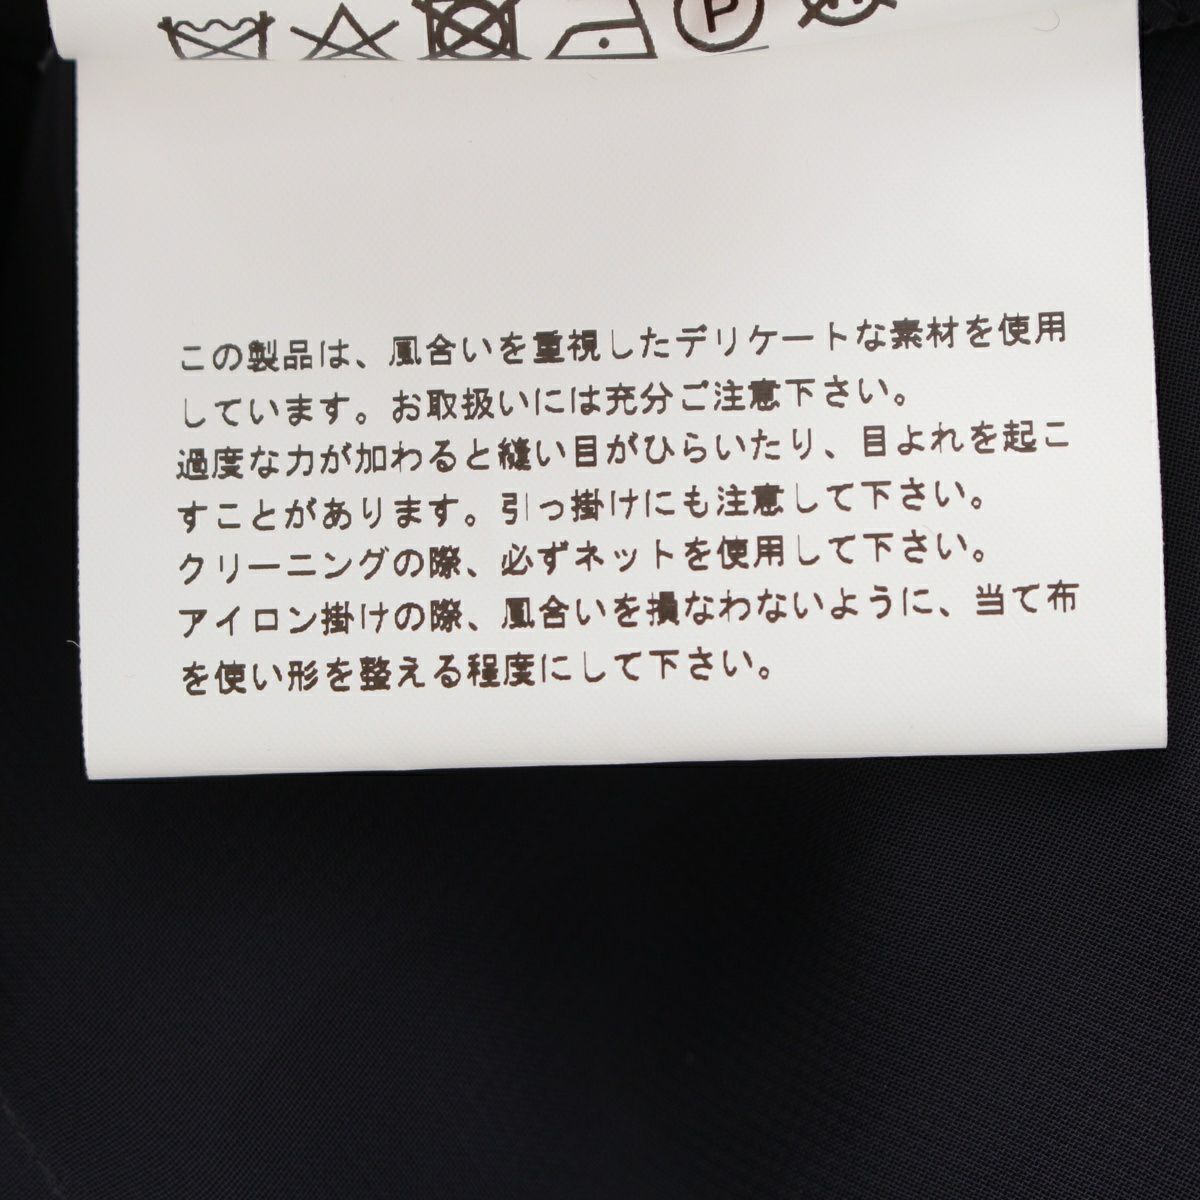 P
この製品は、風合いを重視したデリケートな素材を使用
しています。お取扱いには充分ご注意下さい。
過度な力が加わると縫い目がひらいたり、目よれを起こ
すことがあります。引っ掛けにも注意して下さい。
クリーニングの際、必ずネットを使用して下さい。
アイロン掛けの際、風合いを損なわないように、当て布
を使い形を整える程度にして下さい。